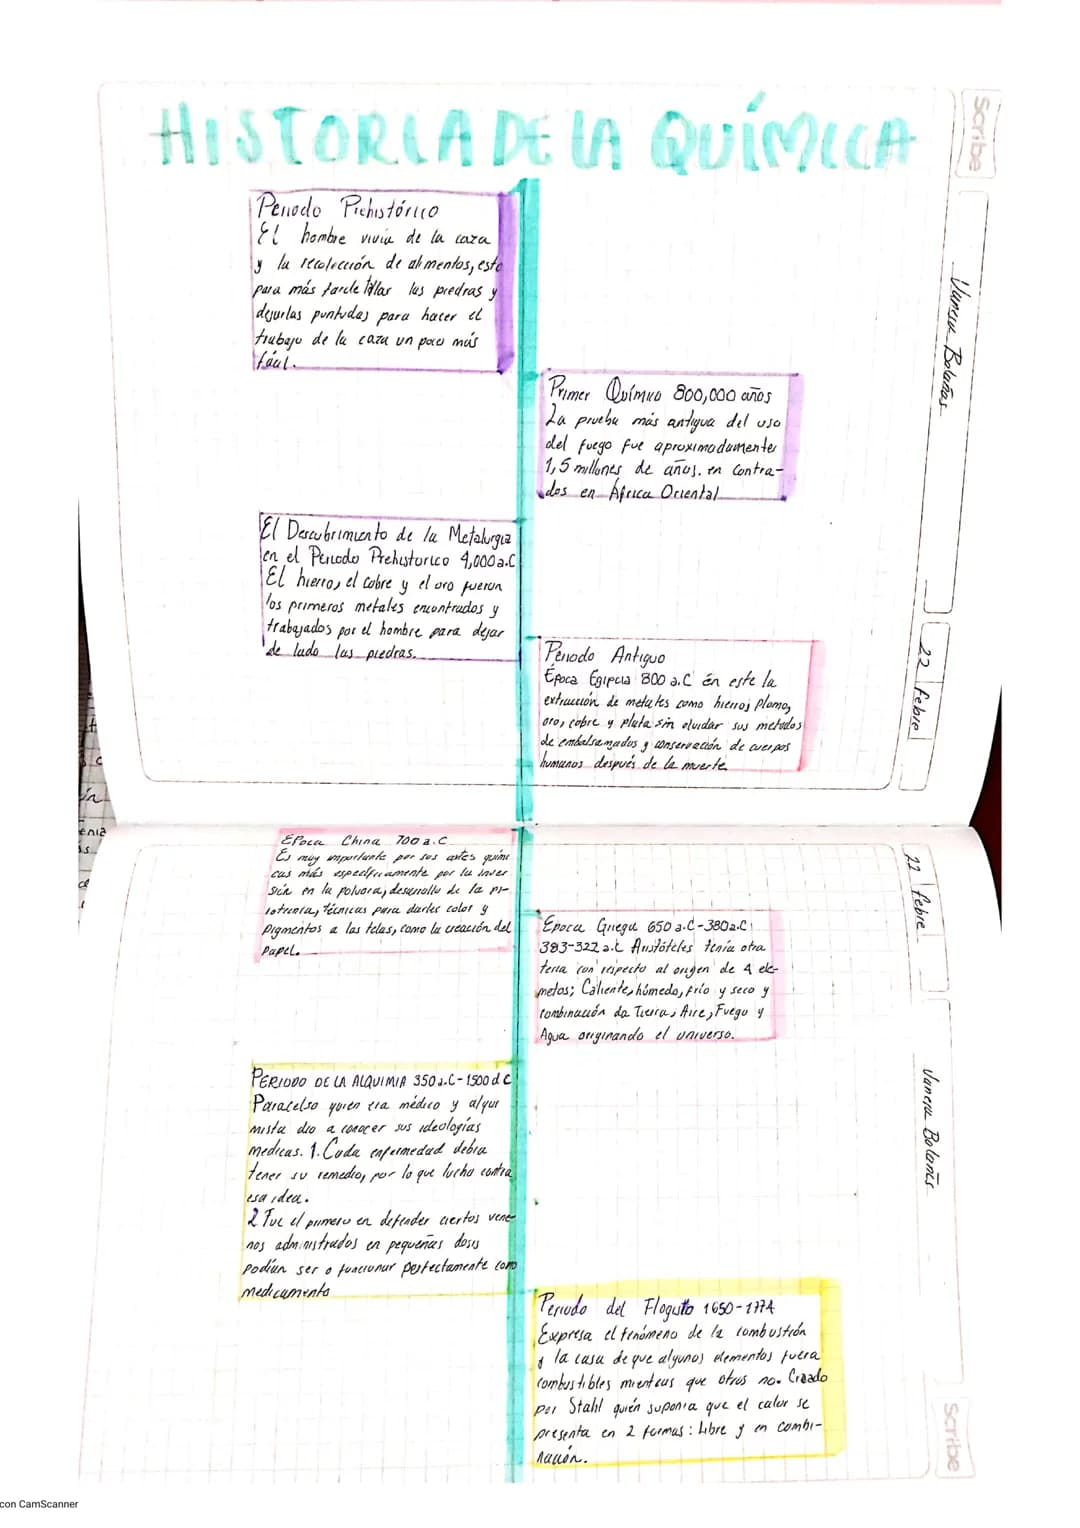 HISTORIA DE LA QUÍMICA
Scribe
Vanesa Bolaños
22 febre
Periodo Prehistórico
El hombre vivia de la caza
y la recolección de alimentos, esto
para más tarde tallar las piedras y
dejarlas puntudas para hacer el
trabajo de la caza un poco más
fácil.
Primer Químico 800,000 años
La prueba más antigua del uso
del fuego fue aproximadamente
1,5 millones de años. en contra-
dos en África Oriental
El Descubrimiento de la Metalurgia
en el Periodo Prehistorico 4,000 a.C
El hierro, el cobre y el oro fueron
los primeros metales encontrados y
trabajados por el hombre para dejar
de lado las piedras.
Periodo Antiguo
Época Egipcia 800 a.C én este la
extracción de metales como hierro, plomo,
oro, cobre y plata sin olvidar sus metodos
de embalsamados y conservación de cuerpos
humanos después de la muerte
Epoca China 700 a.C
Es muy importante por sus artes quími
cas más especificamente por la inver
sión en la polvora, desarrollo de la pi-
rotecnia, técnicas para darles color y
pigmentos a las telas, como la creación del
Papel.
Epoca Griega 650 a.C-380a.C
383-322 a.C Aristóteles tenía otra
teria con respecto al origen de 4 ele-
metos; Caliente, húmedo, frío y seco y
combinación da Tierra, Aire, Fuego y
Agua originando el universo.
PERIODO DE LA ALQUIMIA 350 a.C-1500 d C
Paracelso quien era médico y alqui
mista dio a conocer sus ideologías
medicas. 1. Cada enfermedad debia
tener su remedio, por lo que lucha contra
esa idea.
2 Fue el primero en defender ciertos vene-
nos administrados en pequeñas dosis
Podían ser o funcionar perfectamente como
medicamento
Periodo del Flogisto 1650-1774
Expresa el fenómeno de la combustión
y la casa de que algunos elementos fuera
combustibles mientras que otros no. Creado
por Stahl quién suponia que el calor se
presenta en 2 formas: Libre y en combi-
nación.
22 febre
Vanesa Bolaños
Scribe
con CamScanner